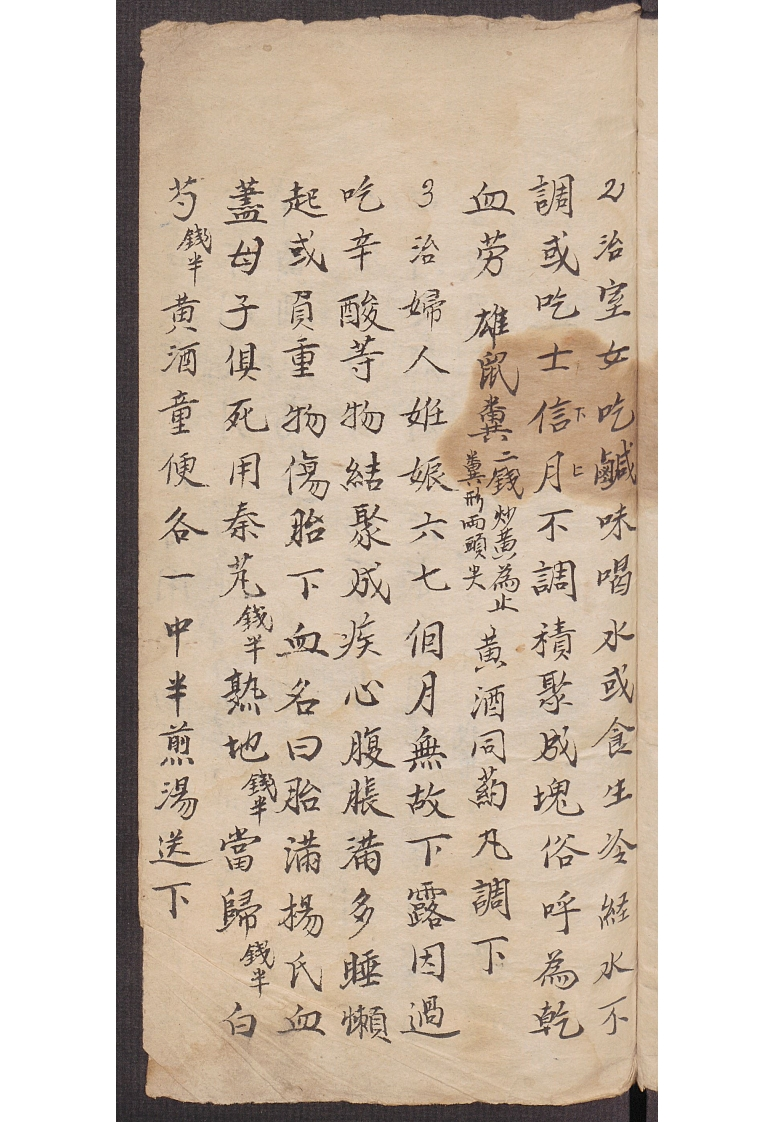 2治室女吃鹹味喝水或食生冷経水不
調或吃士信月不調積聚成塊俗呼為乾
血劳 雄鼠糞二錢炒黄為止糞形兩頭尖黄酒同药凡調下
3治婦人姙娠六七個月無故下露因過
吃辛酸䓁物結聚成疾心腹脹満多睡懶
起或負重物傷胎下血名曰胎滿揚氏血
蓋母子俱死用秦艽錢半熟地錢半當歸錢半白
芍錢半黄酒童便各一中半煎湯送下